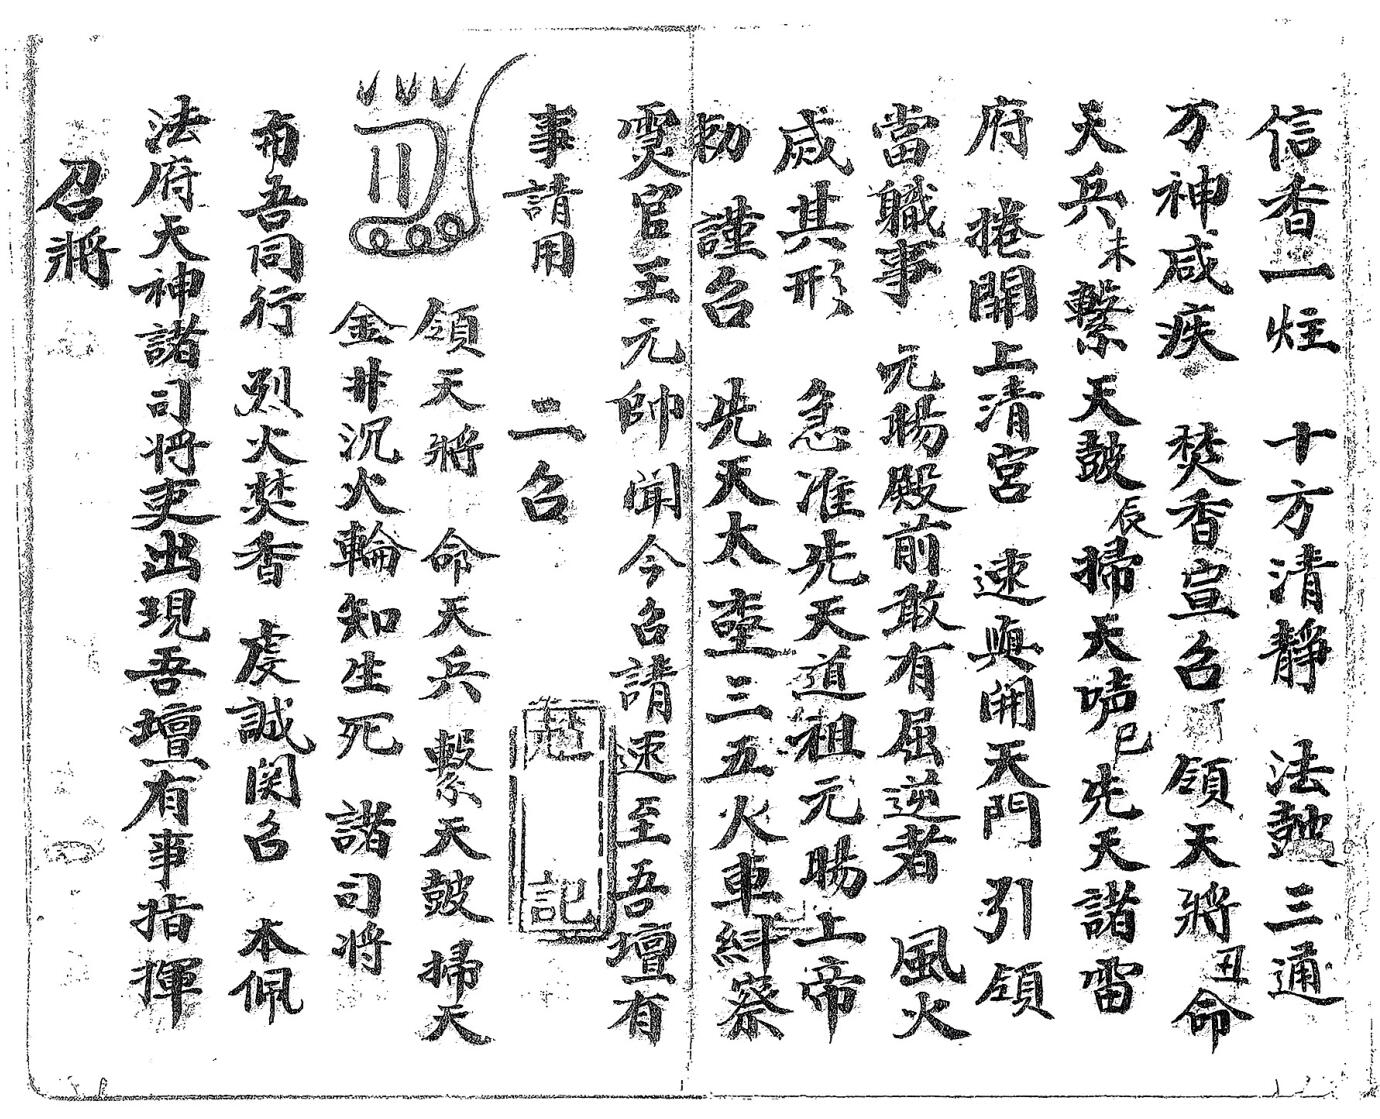 信香一炷 十方清靜 法皷三通
万神咸疾 焚香宣召 領天將丑命
天兵未繫天皷辰掃天唣巳先天諸雷
府 捲開上清宮 速與開天門 引領
當職事 元陽殿前敢有屈逆者 風火
滅其形 急准先天道祖元陽上帝
勅 謹召 先天太 三五火車糾察
霛官王元帥 闻今召請速至吾壇有
事請用 二召
記
領天將 命天兵 繫天皷 掃天
金井沉火輪知生死 諸司將
布吾同行 烈火焚香 虔誠関召 本佩
法府天神諸司將吏出現吾壇有事指揮
召將